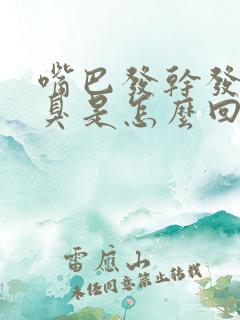 嘴巴發幹發
臭是怎麼回
雷應山
未經同意禁止轉載